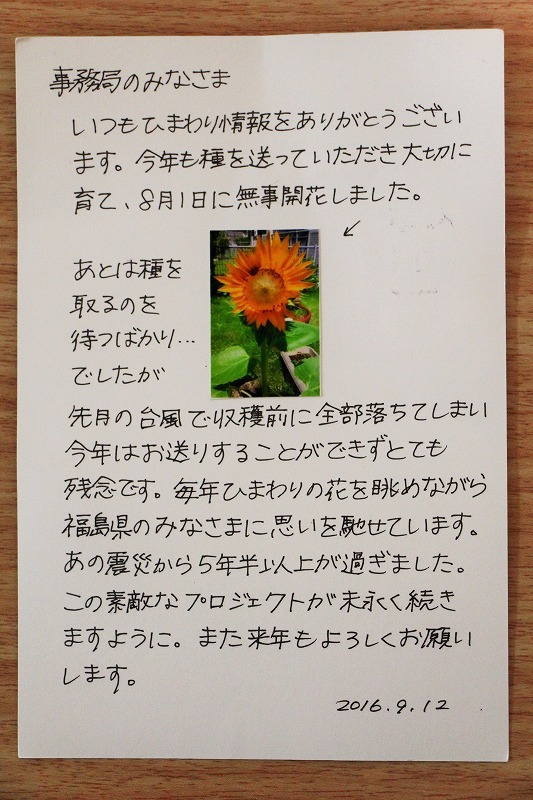 事務局のみなさま
いつもひまわり情報をありがとうござい
ます。今年も種を送っていただき大切に
育て、8月1日に無事開花しました。
あとは種を
取るのを
待つばかり…
でしたが
先月の台風で収穫前に全部落ちてしまい
今年はお送りすることができずとても
残念です。毎年ひまわりの花を眺めながら
福島県のみなさまに思いを馳せています。
あの震災から5年半以上が過ぎました。
この素敵なプロジェクトが末永く続き
ますように。また来年もよろしくお願い
します。
2016.9.12